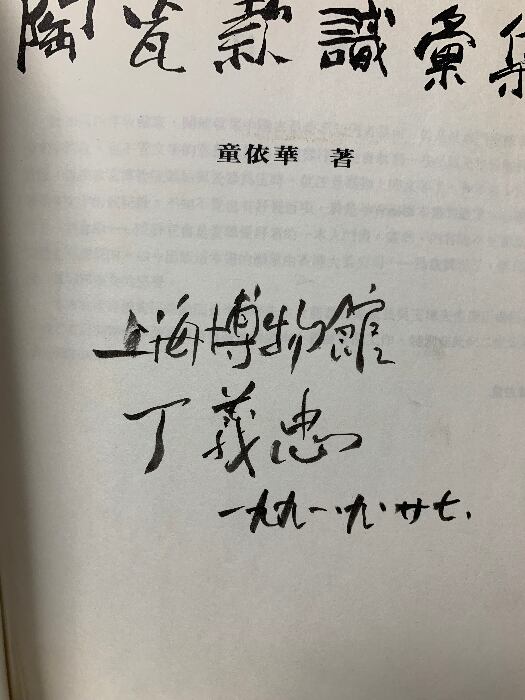 陶瓷款識彙集
童依華 著
上海博物館
丁義忠
一九九一.九.廿七.